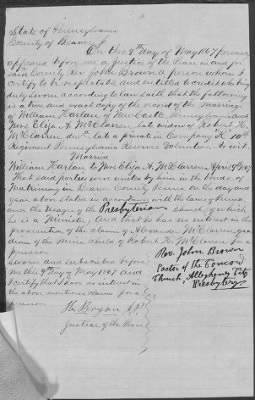 State of Pennsylvania
County of Beaver
On this 9th day of May 1867 personally
appeared before me a Justice of the Peace in and for
said County Rev John Brown a person whom I
certify to be respectable and entitled to credit who being
duly sworn according to law saith that the following
is a true and exact copy of the record of the marriage
of William Harlan of New Castle Pennsylvania and
Mrs. Eliza A. McClaren, late widow of Robert H.
McClaren dec'd late a private in Company K 10th
Regiment Pennsylvania Reserve Volunteers, to wit
Married
William Harlan to Mrs Eliza A. McClaren, April
That said parties were united by him in the bonds of
Matrimony in Beaver County Penna on the day and
year above stated in accordance with the laws of Penna
and the usage of the Presbyterian Church of which
he is a Minister. And that he has no interest in the
prosecution of the claim of Alexander McClaren guar-
dian of the minor child of Robert H. McClaren for a
pension
Rev. John Brown
Pastor of the Concord
Church, Allegheny City
Presbytery
Sworn and subscribed before
me this 9th day of May 1867 and I
certify that I have no interest in
the above mentioned claim for a
pension
Bryan J.P.
Justice of the Peace